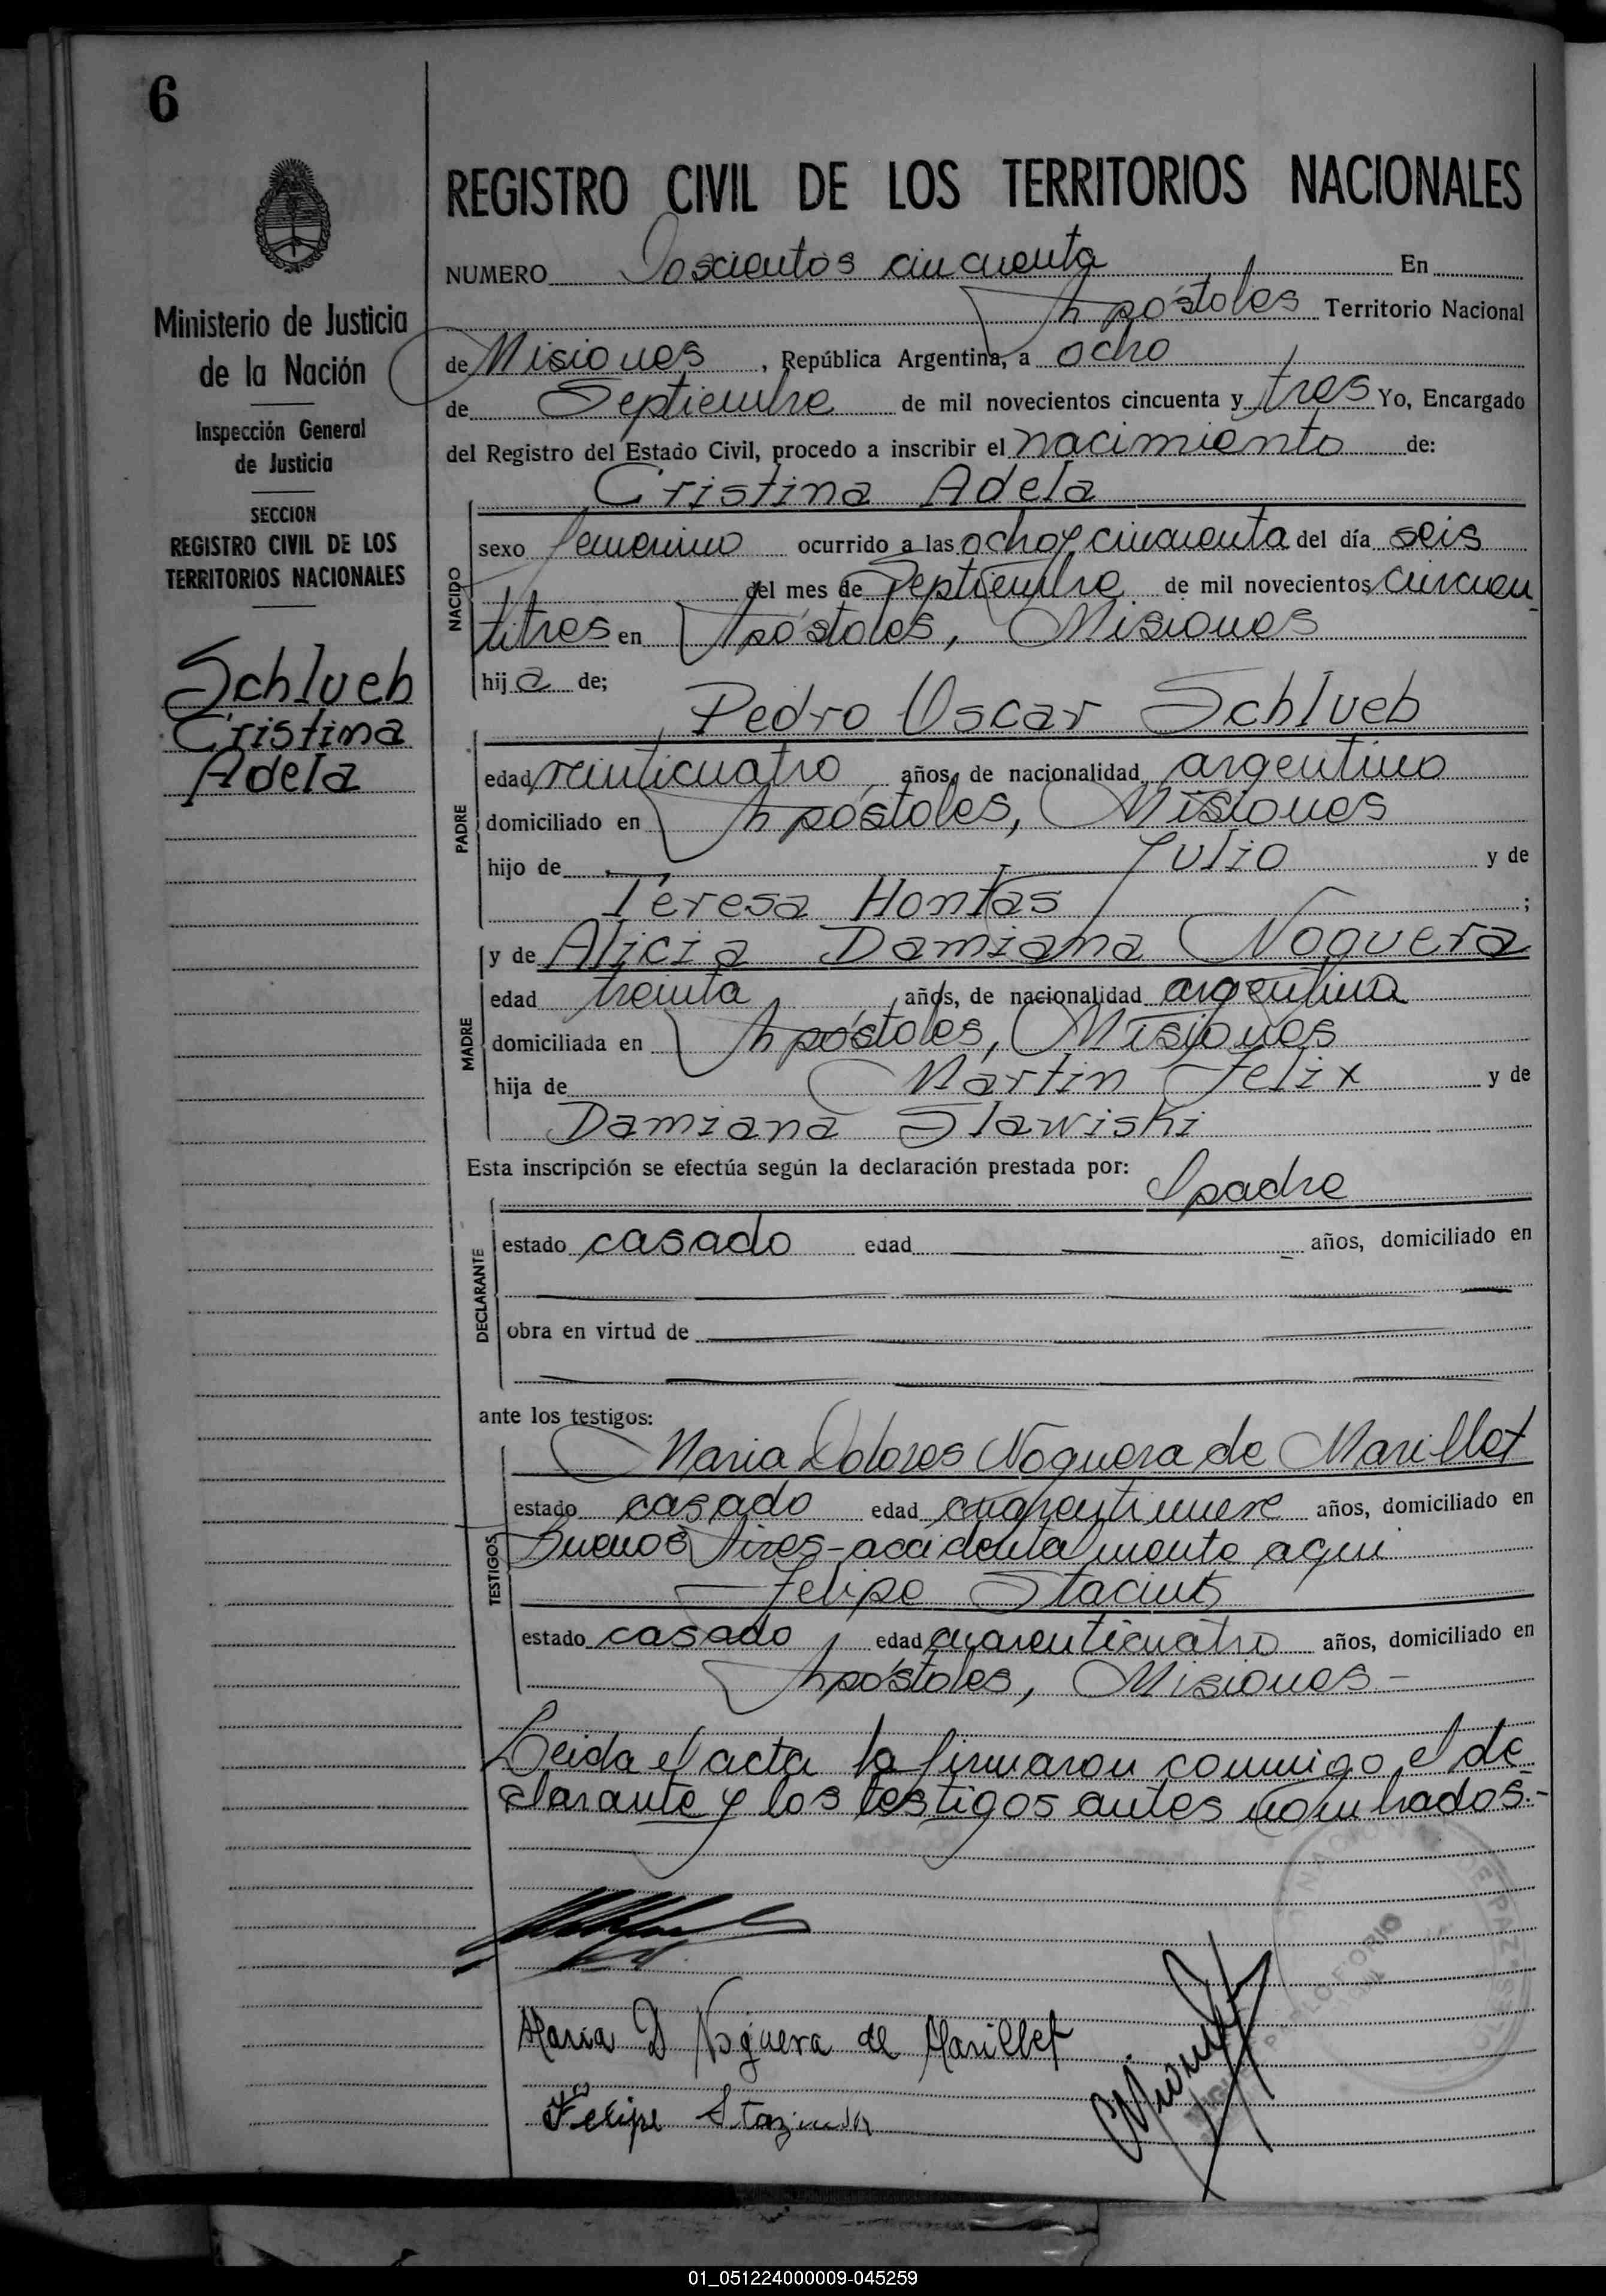 6
REGISTRO CIVIL DE LOS TERRITORIOS NACIONALES
NUMERO Doscientos cincuenta En
Apóstoles Territorio Nacional
de Misiones, República Argentina, a ocho
de Septiembre de mil novecientos cincuenta y tres Yo, Encargado
del Registro del Estado Civil, procedo a inscribir el nacimiento de:
Cristina Adela
NACIDO
sexo femenino ocurrido a las ocho y cincuenta del día seis
del mes de Septiembre de mil novecientos cincuen
titres en Apóstoles, Misiones
hija de;
Pedro Oscar Schlueb
PADRE
edad veinticuatro años, de nacionalidad argentino
domiciliado en Apóstoles, Misiones
hijo de Julio y de
Teresa Hontas;
y de Alicia Damiana Noguera
MADRE
edad treinta años, de nacionalidad argentina
domiciliada en Apóstoles, Misiones
hija de Martin Felix y de
Damiana Slawiski
Esta inscripción se efectúa según la declaración prestada por:
El padre
DECLARANTE
estado casado edad años, domiciliado en
obra en virtud de
ante los testigos:
Maria Dolores Noguera de Marillet
TESTIGOS
estado casado edad cuarentinueve años, domiciliado en
Buenos Aires-accidentalmente aqui
Felipe
estado casado edad cuarenticuatro años, domiciliado en
Apóstoles, Misiones-
Leida el acta la firmaron conmigo el de
clarante y los testigos antes nombrados.-
Maria D Noguera de Marillet
Felipe
Ministerio de Justicia
de la Nación
Inspección General
de Justicia
SECCION
REGISTRO CIVIL DE LOS
TERRITORIOS NACIONALES
Schlueb
Cristina
Adela
01_051224000009-045259